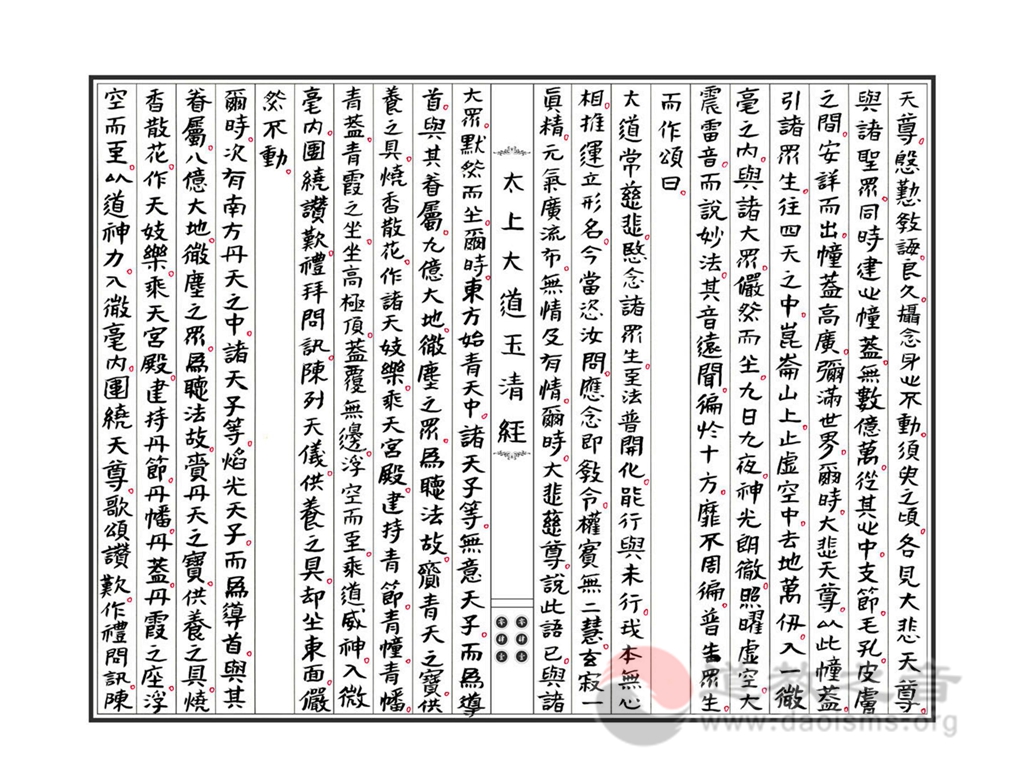 天尊。慇懃敎誨。良久攝念。身心不動。須臾之頃。各見大悲天尊。
與諸聖眾。同時建心幢蓋。無數億萬。從其心中。支節毛孔皮膚
之間。安詳而出。幢蓋高廣。彌滿世界。爾時大悲天尊。以此幢蓋。
引諸眾生。往四天之中。崑崙山上。止虛空中。去地萬仞。入一微
毫之內。與諸大眾。儼然而坐。九日九夜。神光朗徹。照曜虛空。大
震雷音。而說妙法。其音遠聞。徧於十方。靡不周徧。普告眾生。
而作頌曰。
大道常慈悲。愍念諸眾生。至法普開化。能行與未行。我本無心
相。推運立形名。今當恣汝問。應念即敎令。權實無二慧。玄寂一
眞精。元氣廣流布。無情及有情。爾時大悲慈尊。說此語已。與諸
太上大道玉清經
大眾。默然而坐。爾時東方始青天中。諸天子等。無意天子。而爲導
首。與其眷屬。九億大地。微塵之眾。爲聽法故。齎青天之寶。供
養之具。燒香散花。作諸天妓樂。乘天宮殿。建持青節。青幢青幡。
青蓋。青霞之坐。坐高極頂。蓋覆無邊。浮空而至。乘道威神。入微
毫內。圍繞讚歎。禮拜問訊。陳列天儀。供養之具。却坐東面。儼
然不動。
爾時次有南方丹天之中。諸天子等。焰光天子。而爲導首。與其
眷屬。八億大地。微塵之眾。爲聽法故。齎丹天之寶。供養之具。燒
香散花。作天妓樂。乘天宮殿。建持丹節。丹幡。丹蓋。丹霞之座。浮
空而至。以道神力。入微毫內。圍繞天尊。歌頌讚歎。作禮問訊。陳
道教之音
www.daoisms.org